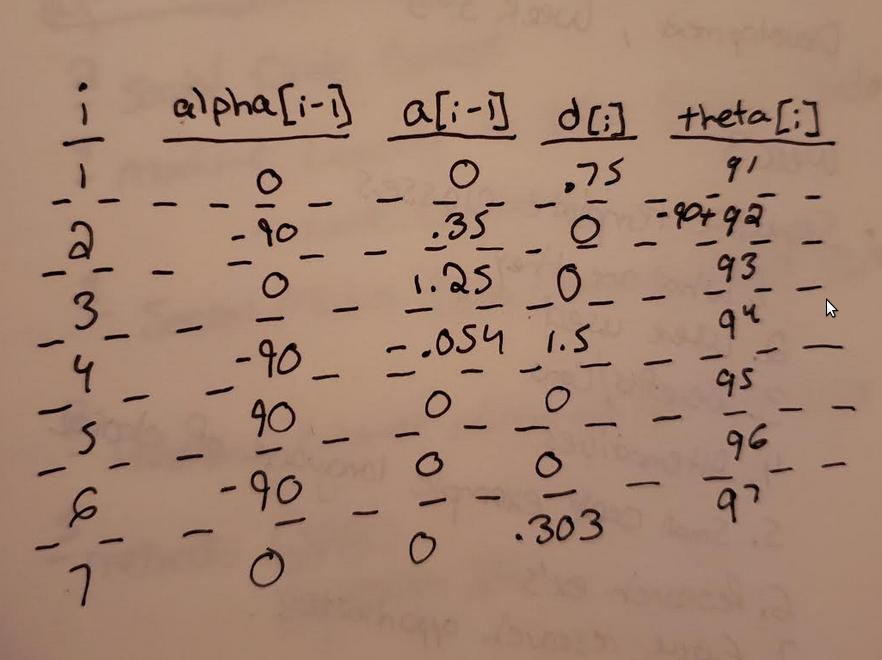 i alpha[i-1] a[i-1] d[i] theta[i]
1 0 0 .75 q1
2 -90 .35 0 -90+q2
3 0 1.25 0 q3
4 -90 -.054 1.5 q4
5 90 0 0 q5
6 -90 0 0 q6
7 0 0 .303 q7